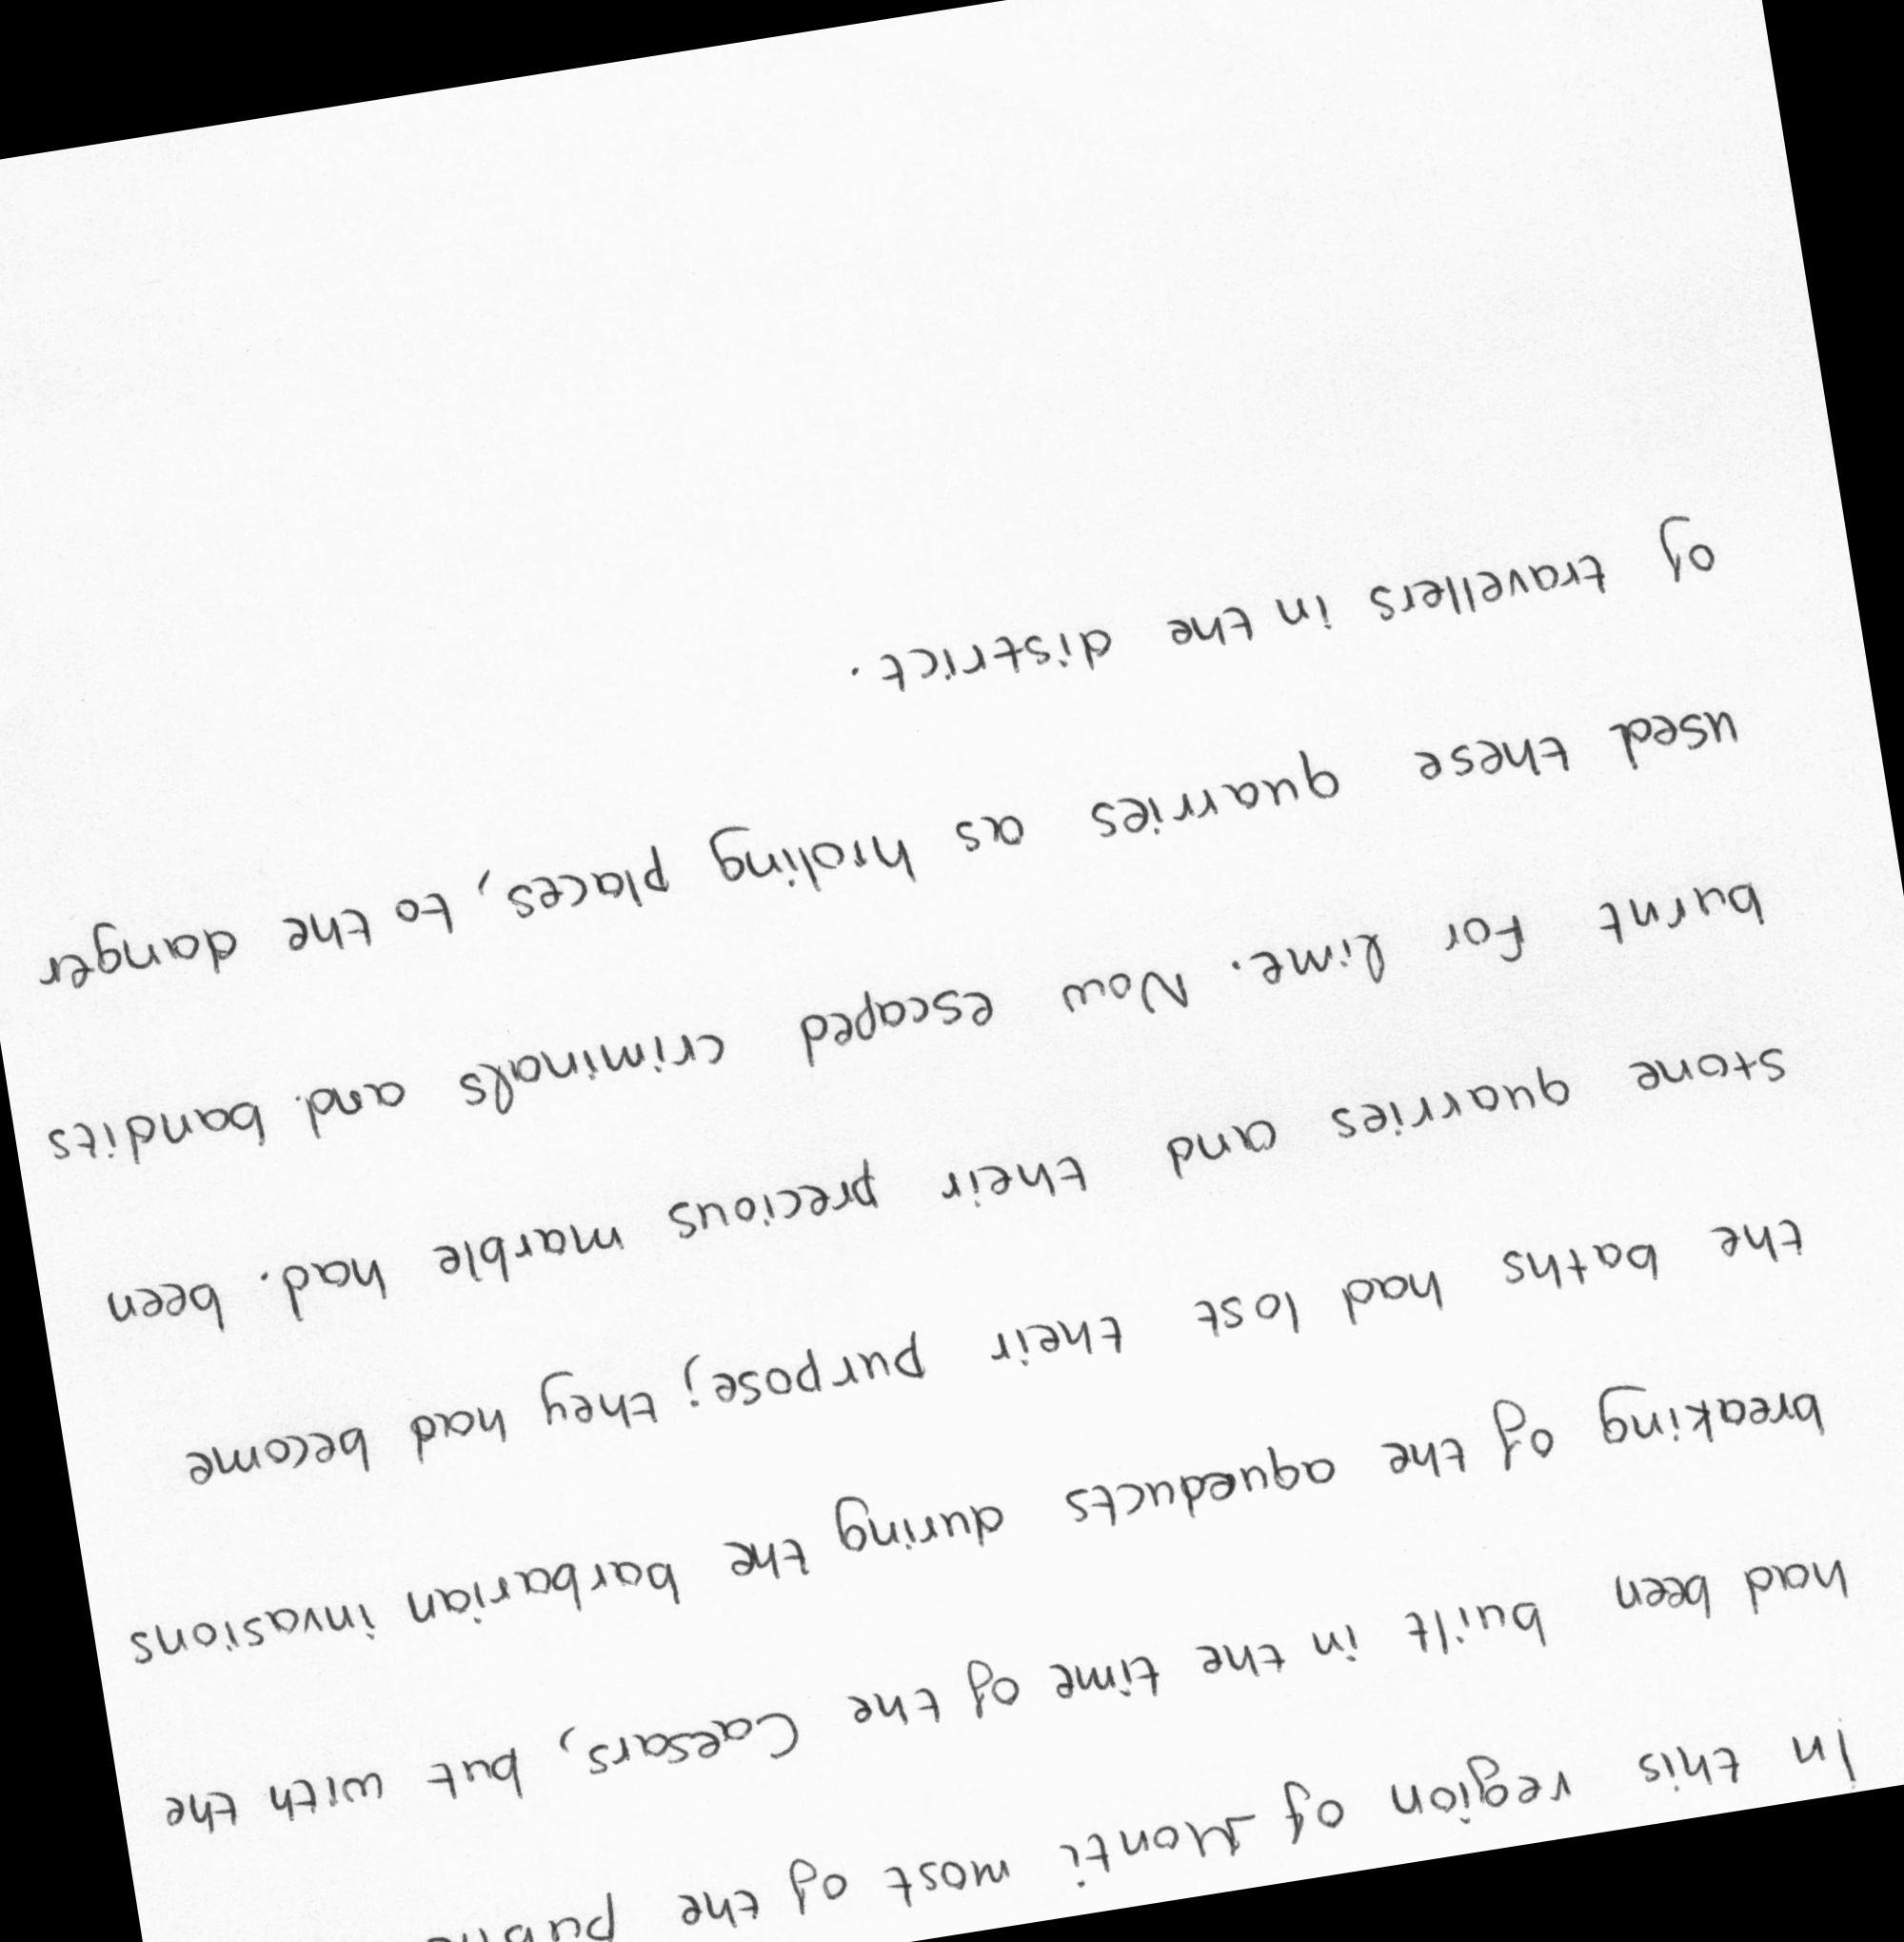 In this region of Monti most of the public
had been built in the time of the Caesars, but with the
breaking of the aqueducts during the barbarian invasions
the baths had lost their purpose; they had become
stone quarries and their precious marble had. been
burnt for lime. Now escaped criminals and. bandits
used these quarries as hiding places, to the danger
of travellers in the district.